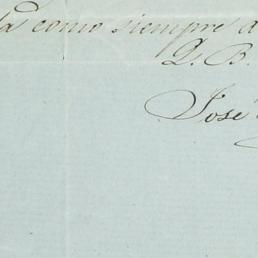 como siempre
Q. B.
José